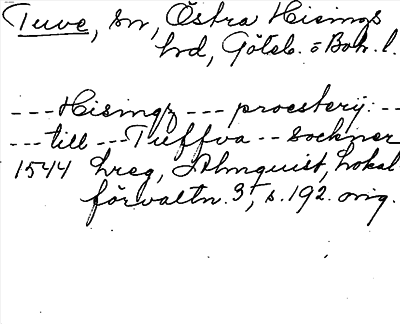 Tuve, sn, Östra Hisings
hd, Göteb. o Boh. l.
--- Hisingz --- proestery: --
--- till --- Tuffva -- sockner
1544 hreg, Almquist, Lokal
förvaltn. 3, s. 192. orig.